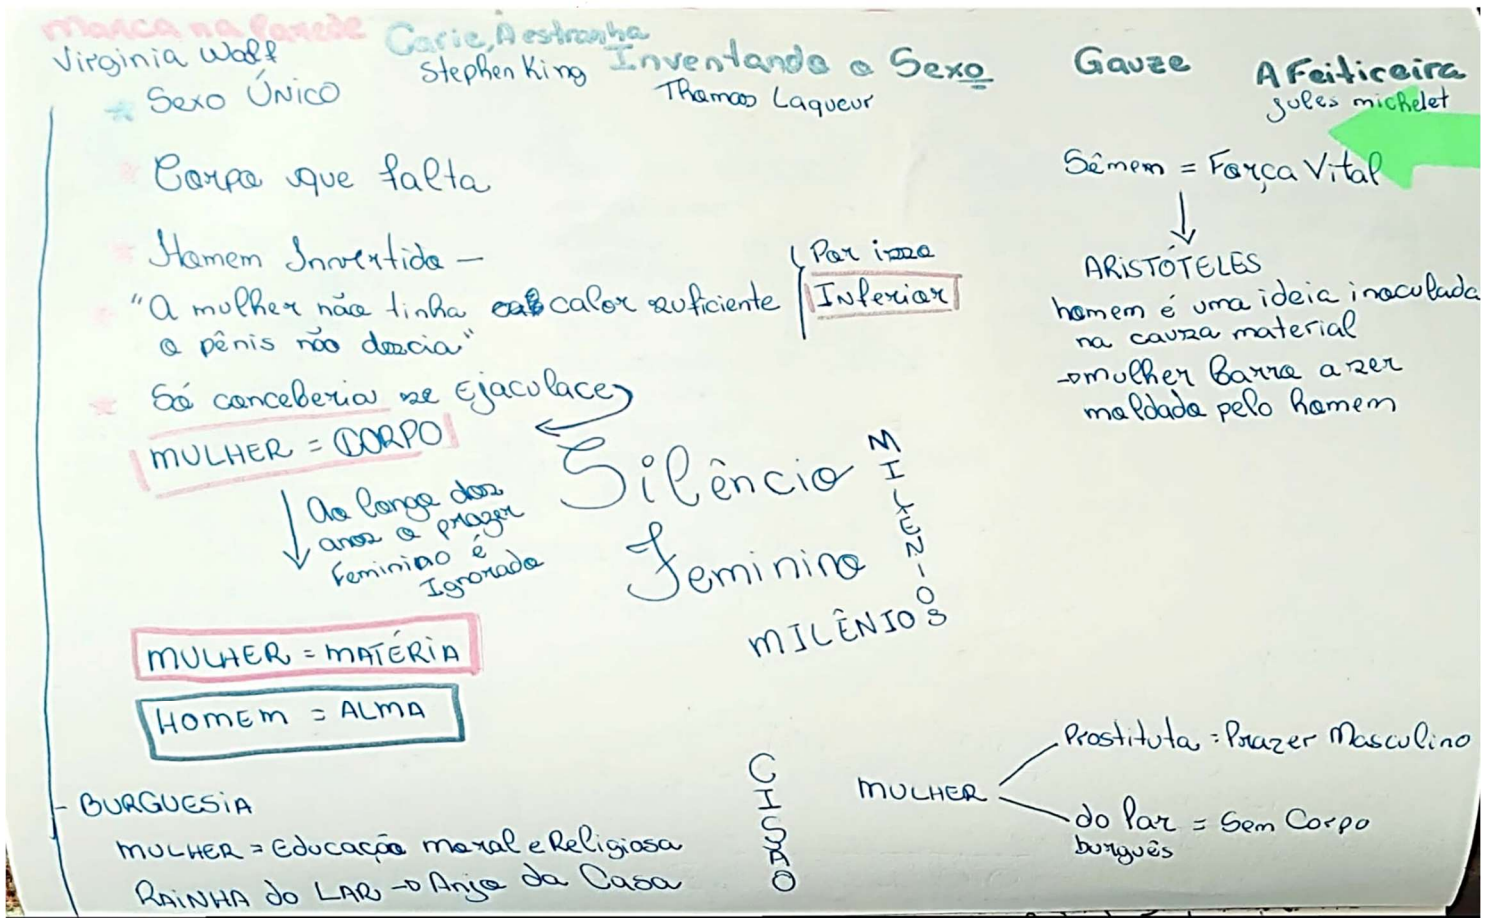 Marca na Parede
Virginia Wolf
Carie, A estranha
Stephen King
Inventando o Sexo
Thomas Laqueur
Gauze
A Feiticeira
Jules michelet
Sexo Único
Corpo que falta
Homem Invertido -
"A mulher não tinha calor suficiente
o pênis não descia"
Por isso
Inferior
Só conceberia se Ejaculace
MULHER = CORPO
Ao longo dos
anos o prazer
Feminino é
Ignorado
Silêncio
Feminino
MILENIOS
MILÊNIOS
Sêmem = Força Vital
ARISTÓTELES
homem é uma ideia inoculada
na causa material
→ mulher Barro a ser
moldada pelo homem
MULHER = MATÉRIA
HOMEM = ALMA
- BURGUESIA
MULHER = Educação moral e Religiosa
RAINHA do LAR → Anjo da Casa
CISÃO
MULHER
Prostituta = Prazer Masculino
do lar = Sem Corpo
burguês